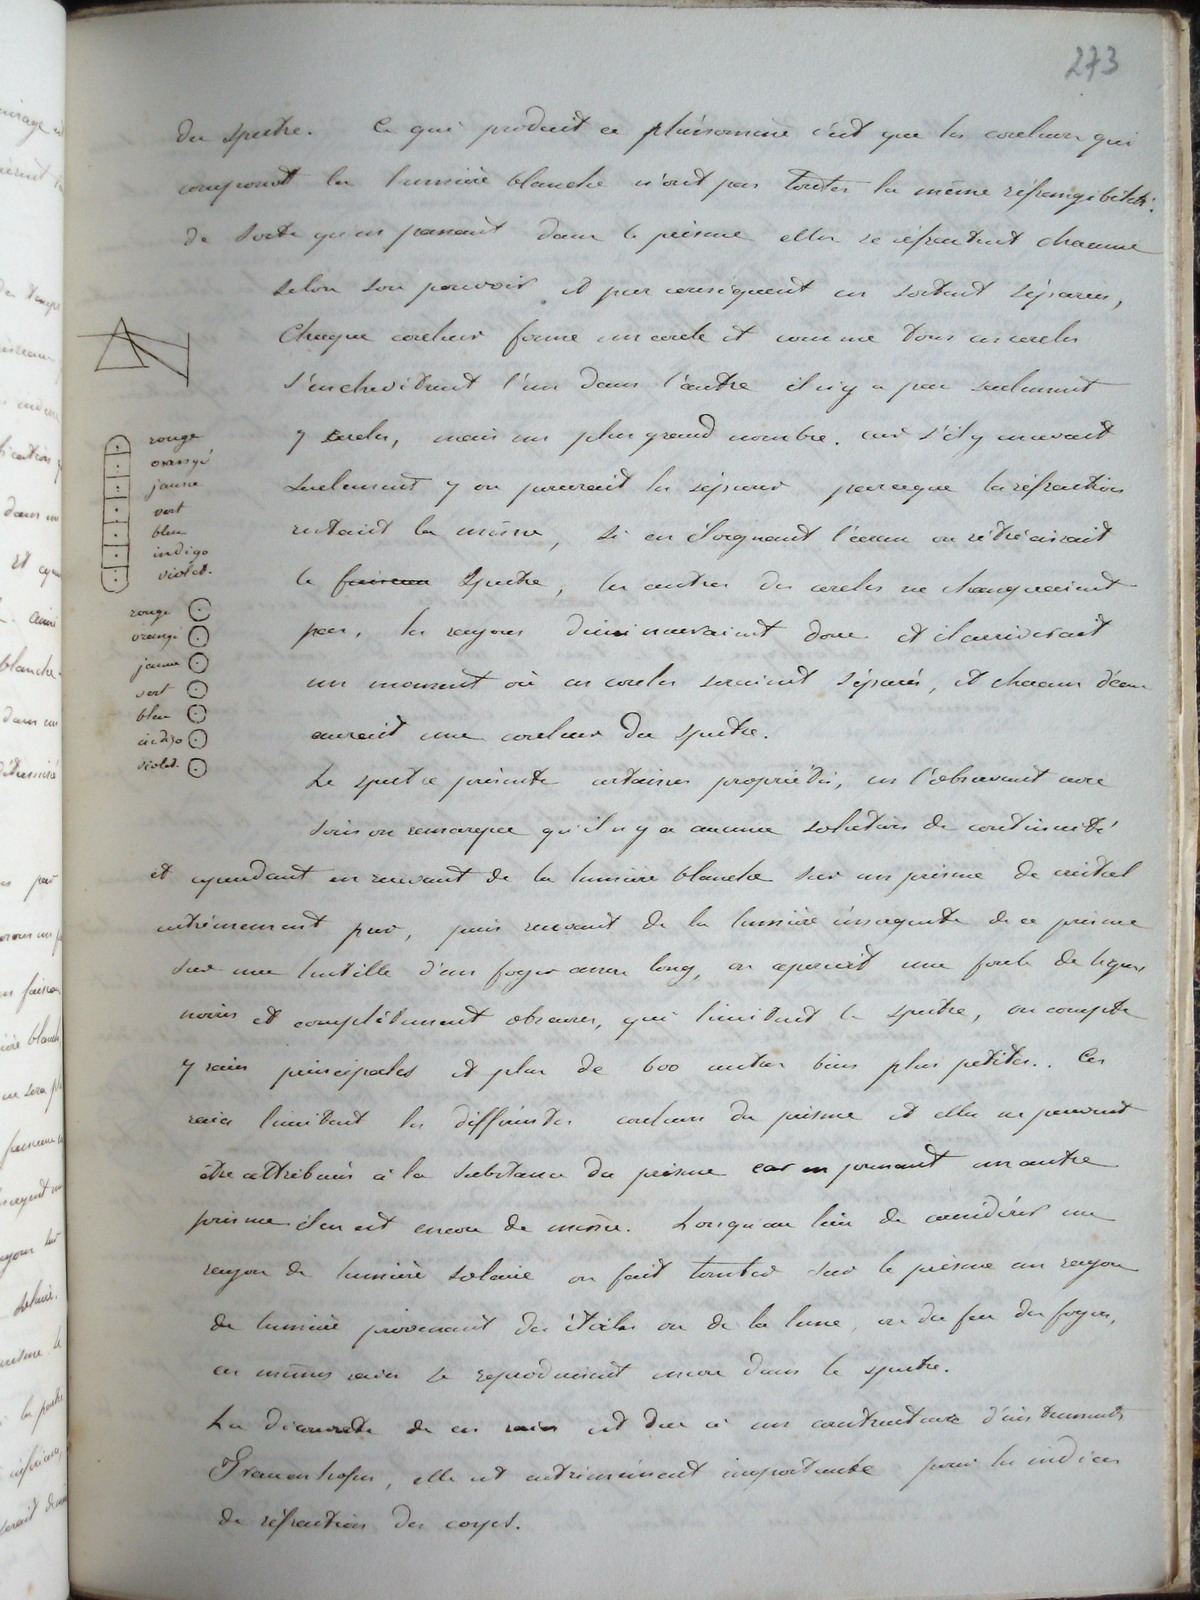 273
du spectre. Ce qui produit ce phénomène c'est que les couleurs qui
composent la lumière blanche n'ont pas toutes la même réfrangibilité.
de sorte qu'en passant dans le prisme elles se réfractent chacune
selon son pouvoir et par conséquent en sortent séparées,
Chaque couleur forme un cercle et comme tous ces cercles
s'enchevêtrent l'un dans l'autre il n'y a pas seulement
7 cercles, mais un plus grand nombre. car s'il y en avait
seulement 7 on pourrait les séparer parceque la réfraction
restant la même, si en éloignant l'écran on rétrécissait
le faisceau spectre, les centres des cercles ne changeraient
pas, les rayons diminueraient donc et il arriverait
un moment où ces cercles seraient séparés, et chacun d'eux
aurait une couleur du spectre.
rouge
orangé
jaune
vert
bleu
indigo
violet.
rouge
orangé
jaune
vert
bleu
indigo
violet.
Le spectre présente certaines propriétés, en l'observant avec
soin on remarque qu'il n'y a aucune solution de continuité
et cependant en recevant de la lumière blanche sur un prisme de cristal
extrêmement pur, puis recevant de la lumière émergente de ce prisme
sur une lentille d'un foyer assez long, on aperçoit une foule de lignes
noires et complètement obscures, qui limitent le spectre, on compte
7 raies principales et plus de 600 autres bien plus petites. Ces
raies limitent les différentes couleurs du prisme et elles ne peuvent
être attribuées à la substance du prisme car en prenant un autre
prisme il en est encore de même. Lorsqu'au lieu de considérer un
rayon de lumière solaire on fait tomber sur le prisme un rayon
de lumière provenant des étoiles ou de la lune, ou du feu des foyers,
ces mêmes raies se reproduisent encore dans le spectre.
La découverte de ces raies est due à un constructeur d'instruments
Frauenhofer, elle est extrêmement importante pour les indices
de réfraction des corps.